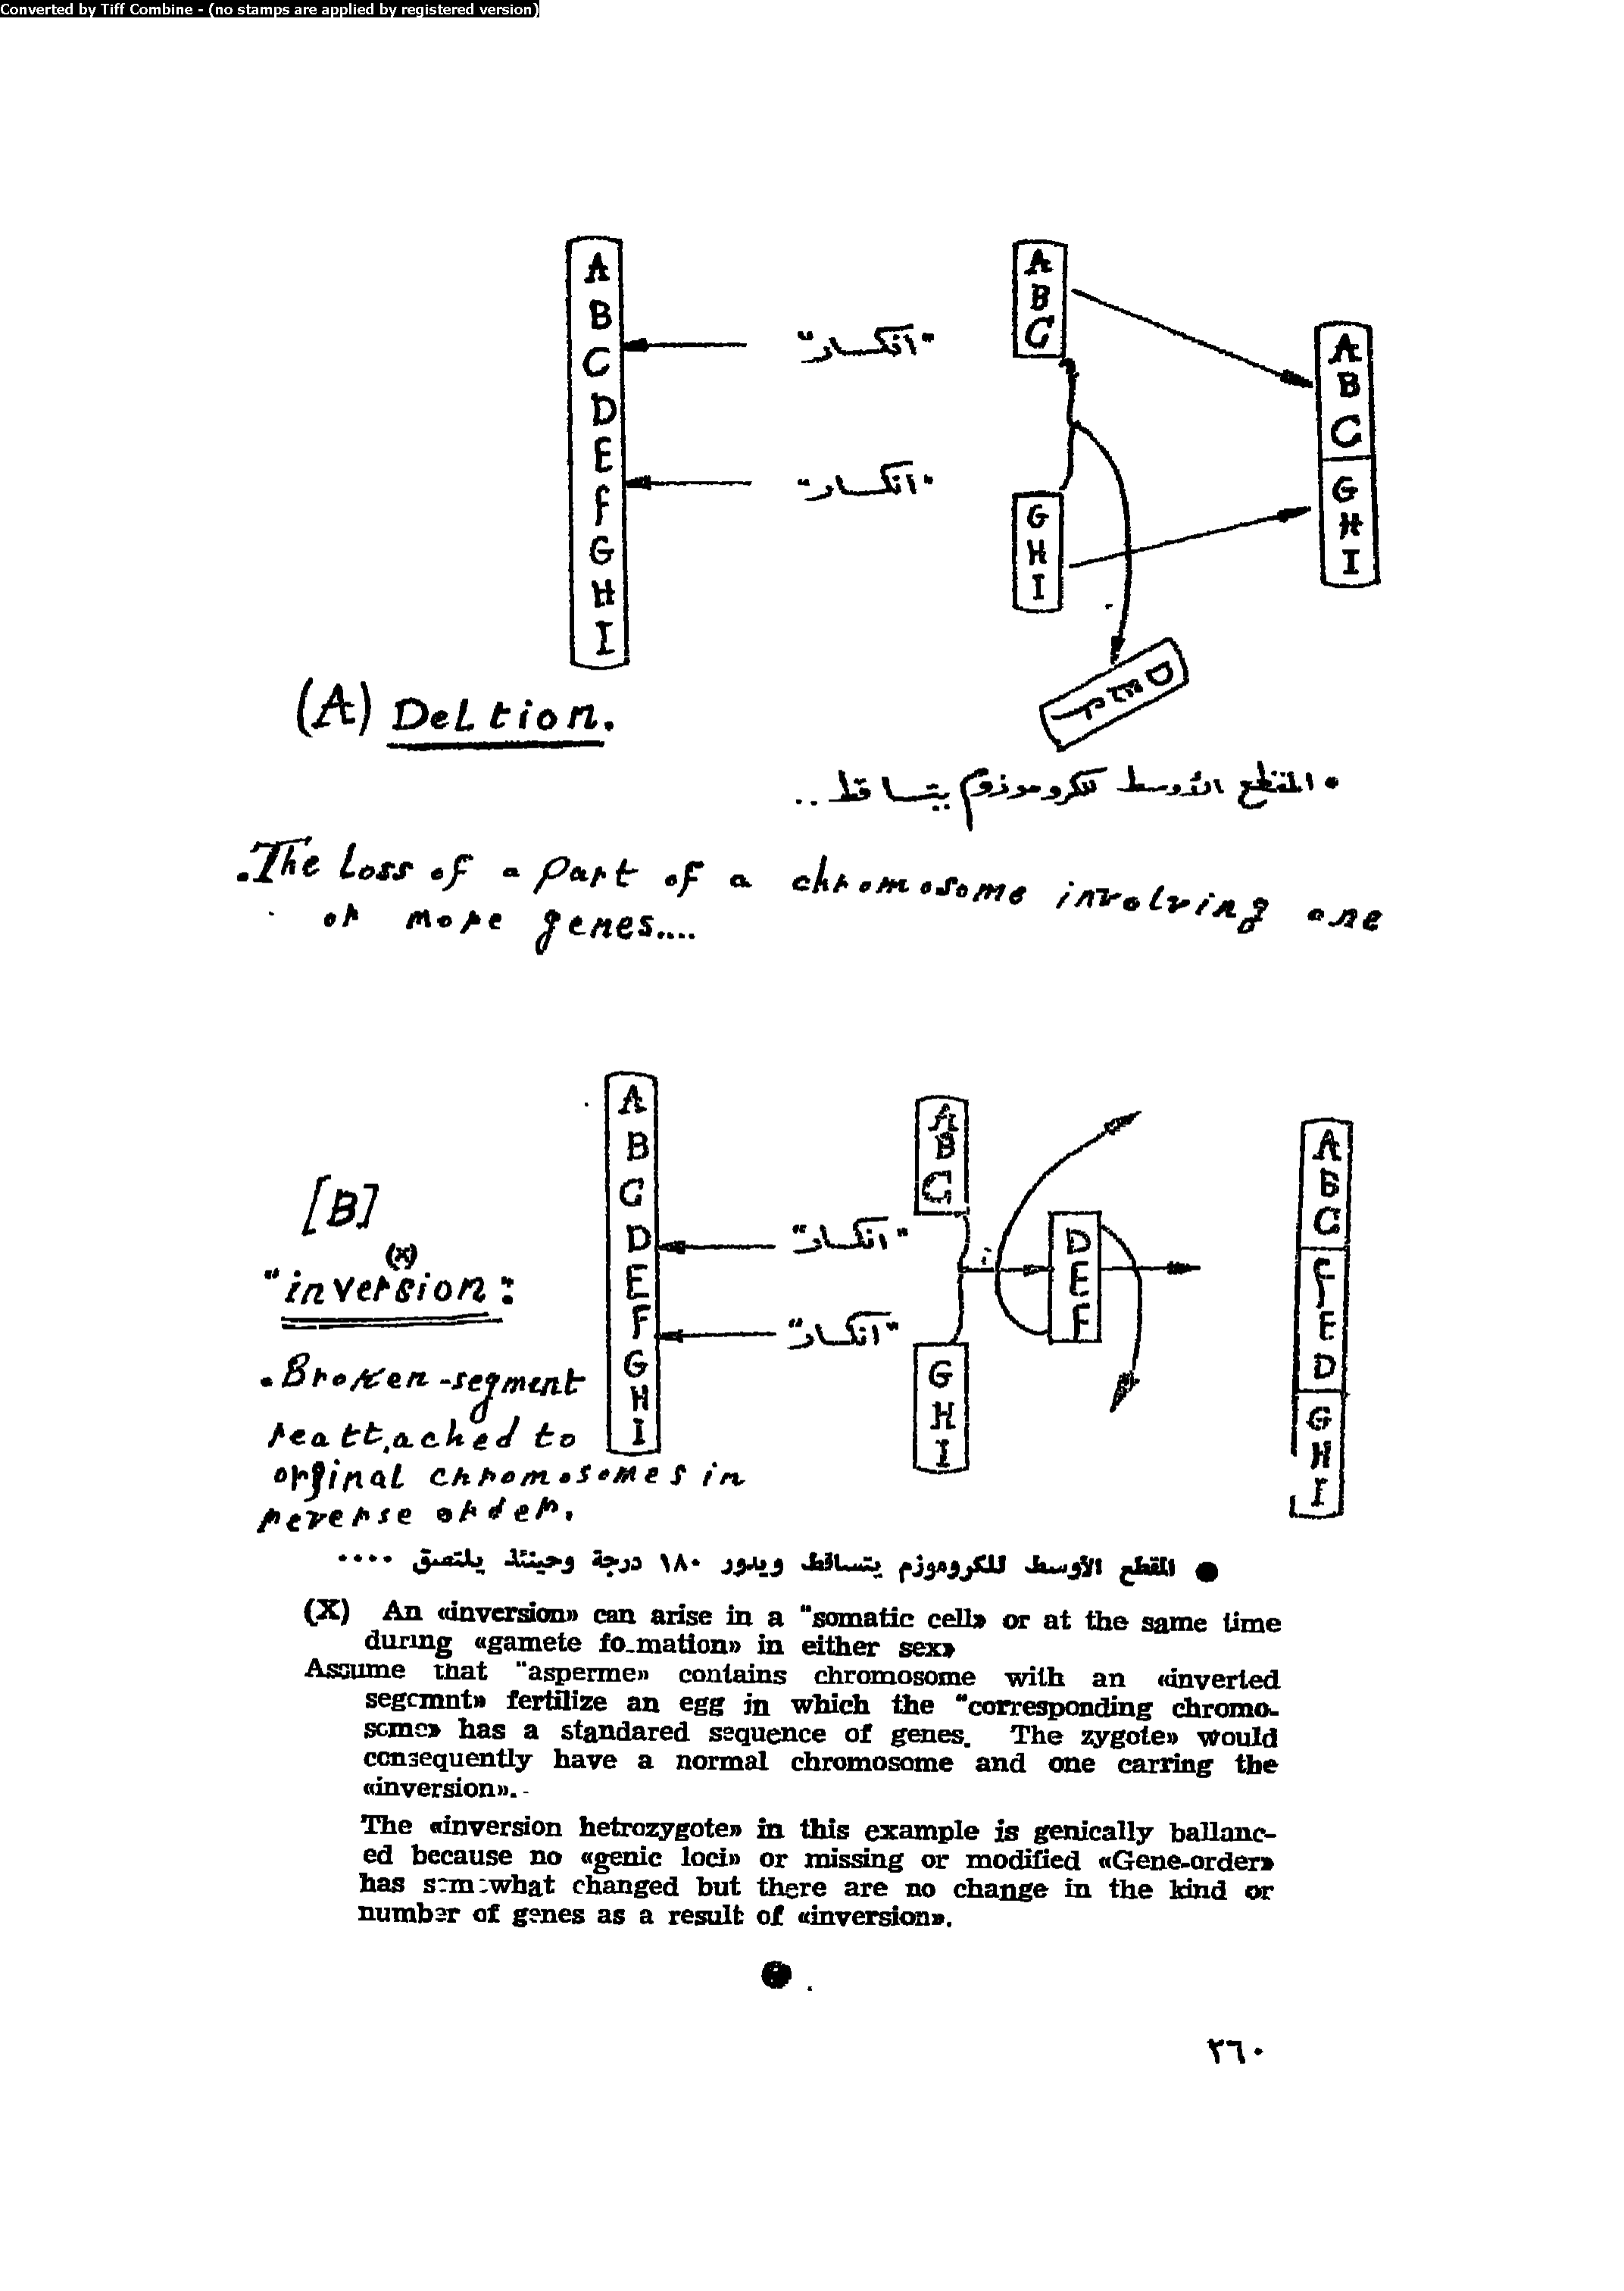 Converted by Tiff Combine - (no stamps are applied by registered version)
A
B
C
D
E
F
G
H
I
"انكسار"
"انكسار"
A
B
C
G
H
I
D E F
A
B
C
G
H
I
(A) Deltion.
• المقطع الأوسط للكروموزوم يتساقط ..
.The Loss of a part of a chromosome involving one
or more genes....
A
B
C
D
E
F
G
H
I
"انكسار"
"انكسار"
A
B
C
G
H
I
D
E
F
A
B
C
F
E
D
G
H
I
[B]
(x)
"inversion:
.Broken-segment
reattached to
orginal chromosomes in
reverse order.
● المقطع الأوسط للكروموزم يتساقط ويدور ١٨٠ درجة وحينئذ يلتصق ....
(X) An «inversion» can arise in a "somatic cell» or at the same time
during «gamete fo_mation» in either sex»
Assume that "asperme» contains chromosome with an «inverted
segemnt» fertilize an egg in which the "corresponding chromo-
some» has a standared sequence of genes. The zygote» would
consequently have a normal chromosome and one carring the
«inversion».-
The «inversion hetrozygote» in this example is genically ballanc-
ed because no «genic loci» or missing or modified «Gene-order»
has somewhat changed but there are no change in the kind or
number of genes as a result of «inversion».
٢٦٠